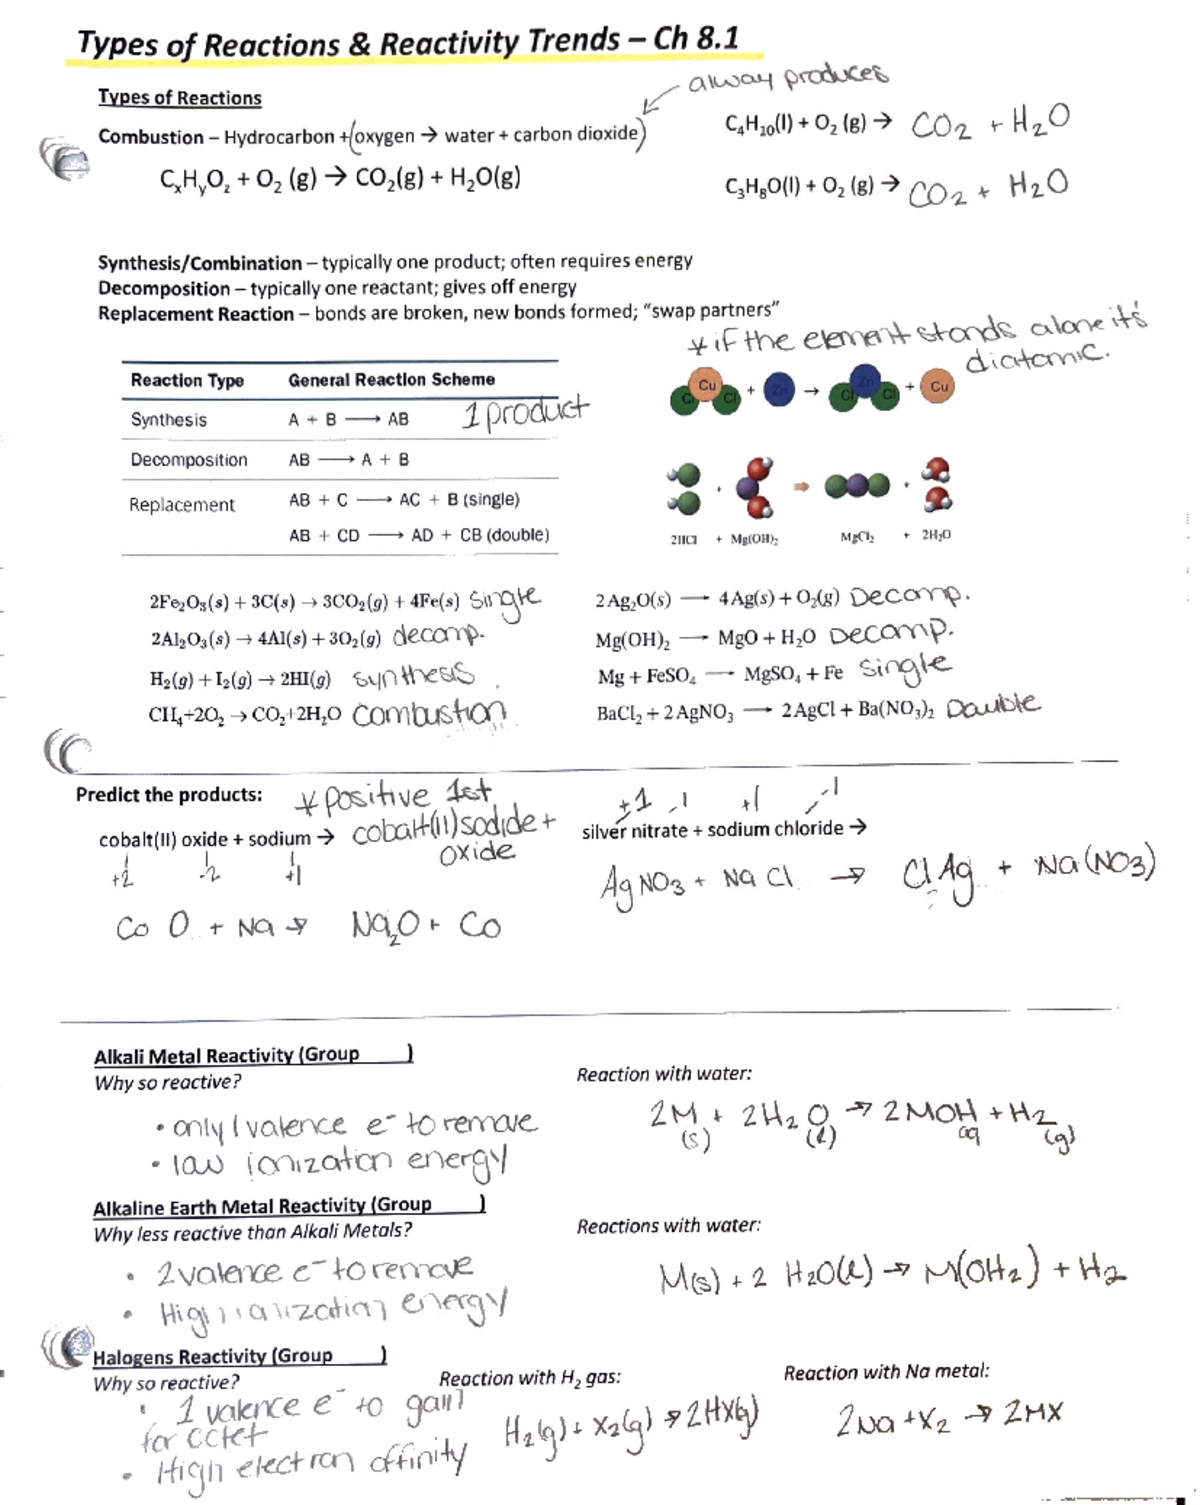 Types of Reactions & Reactivity Trends – Ch 8.1
alway produces
Types of Reactions
Combustion – Hydrocarbon + (oxygen → water + carbon dioxide)
C₄H₁₀(l) + O₂ (g) → CO2 + H2O
CₓHᵧO_z + O₂ (g) → CO₂(g) + H₂O(g)
C₃H₈O(l) + O₂ (g) → CO2 + H2O
Synthesis/Combination – typically one product; often requires energy
Decomposition – typically one reactant; gives off energy
Replacement Reaction – bonds are broken, new bonds formed; "swap partners"
* if the element stands alone it's
diatomic.
Reaction Type General Reaction Scheme
Synthesis A + B ⟶ AB 1 product
Decomposition AB ⟶ A + B
Replacement AB + C ⟶ AC + B (single)
AB + CD ⟶ AD + CB (double)
Cl Cu Cl + Zn → Cl Zn Cl + Cu
2HCl + Mg(OH)₂ MgCl₂ + 2H₂O
2Fe₂O₃(s) + 3C(s) → 3CO₂(g) + 4Fe(s) Single
2Al₂O₃(s) → 4Al(s) + 3O₂(g) decomp.
H₂(g) + I₂(g) → 2HI(g) synthesis
CH₄+2O₂ → CO₂+2H₂O Combustion
2 Ag₂O(s) ⟶ 4 Ag(s) + O₂(g) Decomp.
Mg(OH)₂ ⟶ MgO + H₂O Decomp.
Mg + FeSO₄ ⟶ MgSO₄ + Fe Single
BaCl₂ + 2 AgNO₃ ⟶ 2 AgCl + Ba(NO₃)₂ Double
Predict the products: * positive 1st
cobalt(II) oxide + sodium → cobalt(II) sodide +
oxide
+2 -2 +1
Co O + Na → Na₂O + Co
+1 -1 +1 -1
silver nitrate + sodium chloride →
AgNO3 + NaCl → ClAg + Na(NO3)
Alkali Metal Reactivity (Group )
Why so reactive?
• only 1 valence e⁻ to remove
• low ionization energy
Reaction with water:
2M + 2H₂O → 2MOH + H₂
(s) (l) aq (g)
Alkaline Earth Metal Reactivity (Group )
Why less reactive than Alkali Metals?
• 2 valence e⁻ to remove
• High ialization energy
Reactions with water:
M(s) + 2 H₂O(l) → M(OH₂) + H₂
Halogens Reactivity (Group )
Why so reactive?
• 1 valence e⁻ to gain
for octet
• High electron affinity
Reaction with H₂ gas:
H₂(g) + X₂(g) → 2HX(g)
Reaction with Na metal:
2Na + X₂ → 2MX